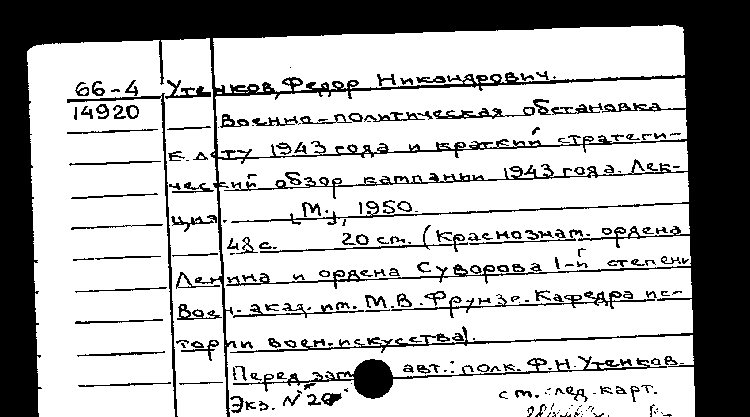 66-4 Утенков, Федор Никандрович.
14920 Военно-политическая обстановка
к лету 1943 года и краткий стратеги-
ческий обзор кампании 1943 года. Лек-
ция. [М.], 1950.
48 с. 20 см. (Краснознам. ордена
Ленина и ордена Суворова 1-й степени
Воен. акад. им. М.В. Фрунзе. Кафедра ис-
тории воен. искусства).
Перед загл. авт.: полк. Ф.Н. Утенков.
Экз. № 20
см. след. карт.